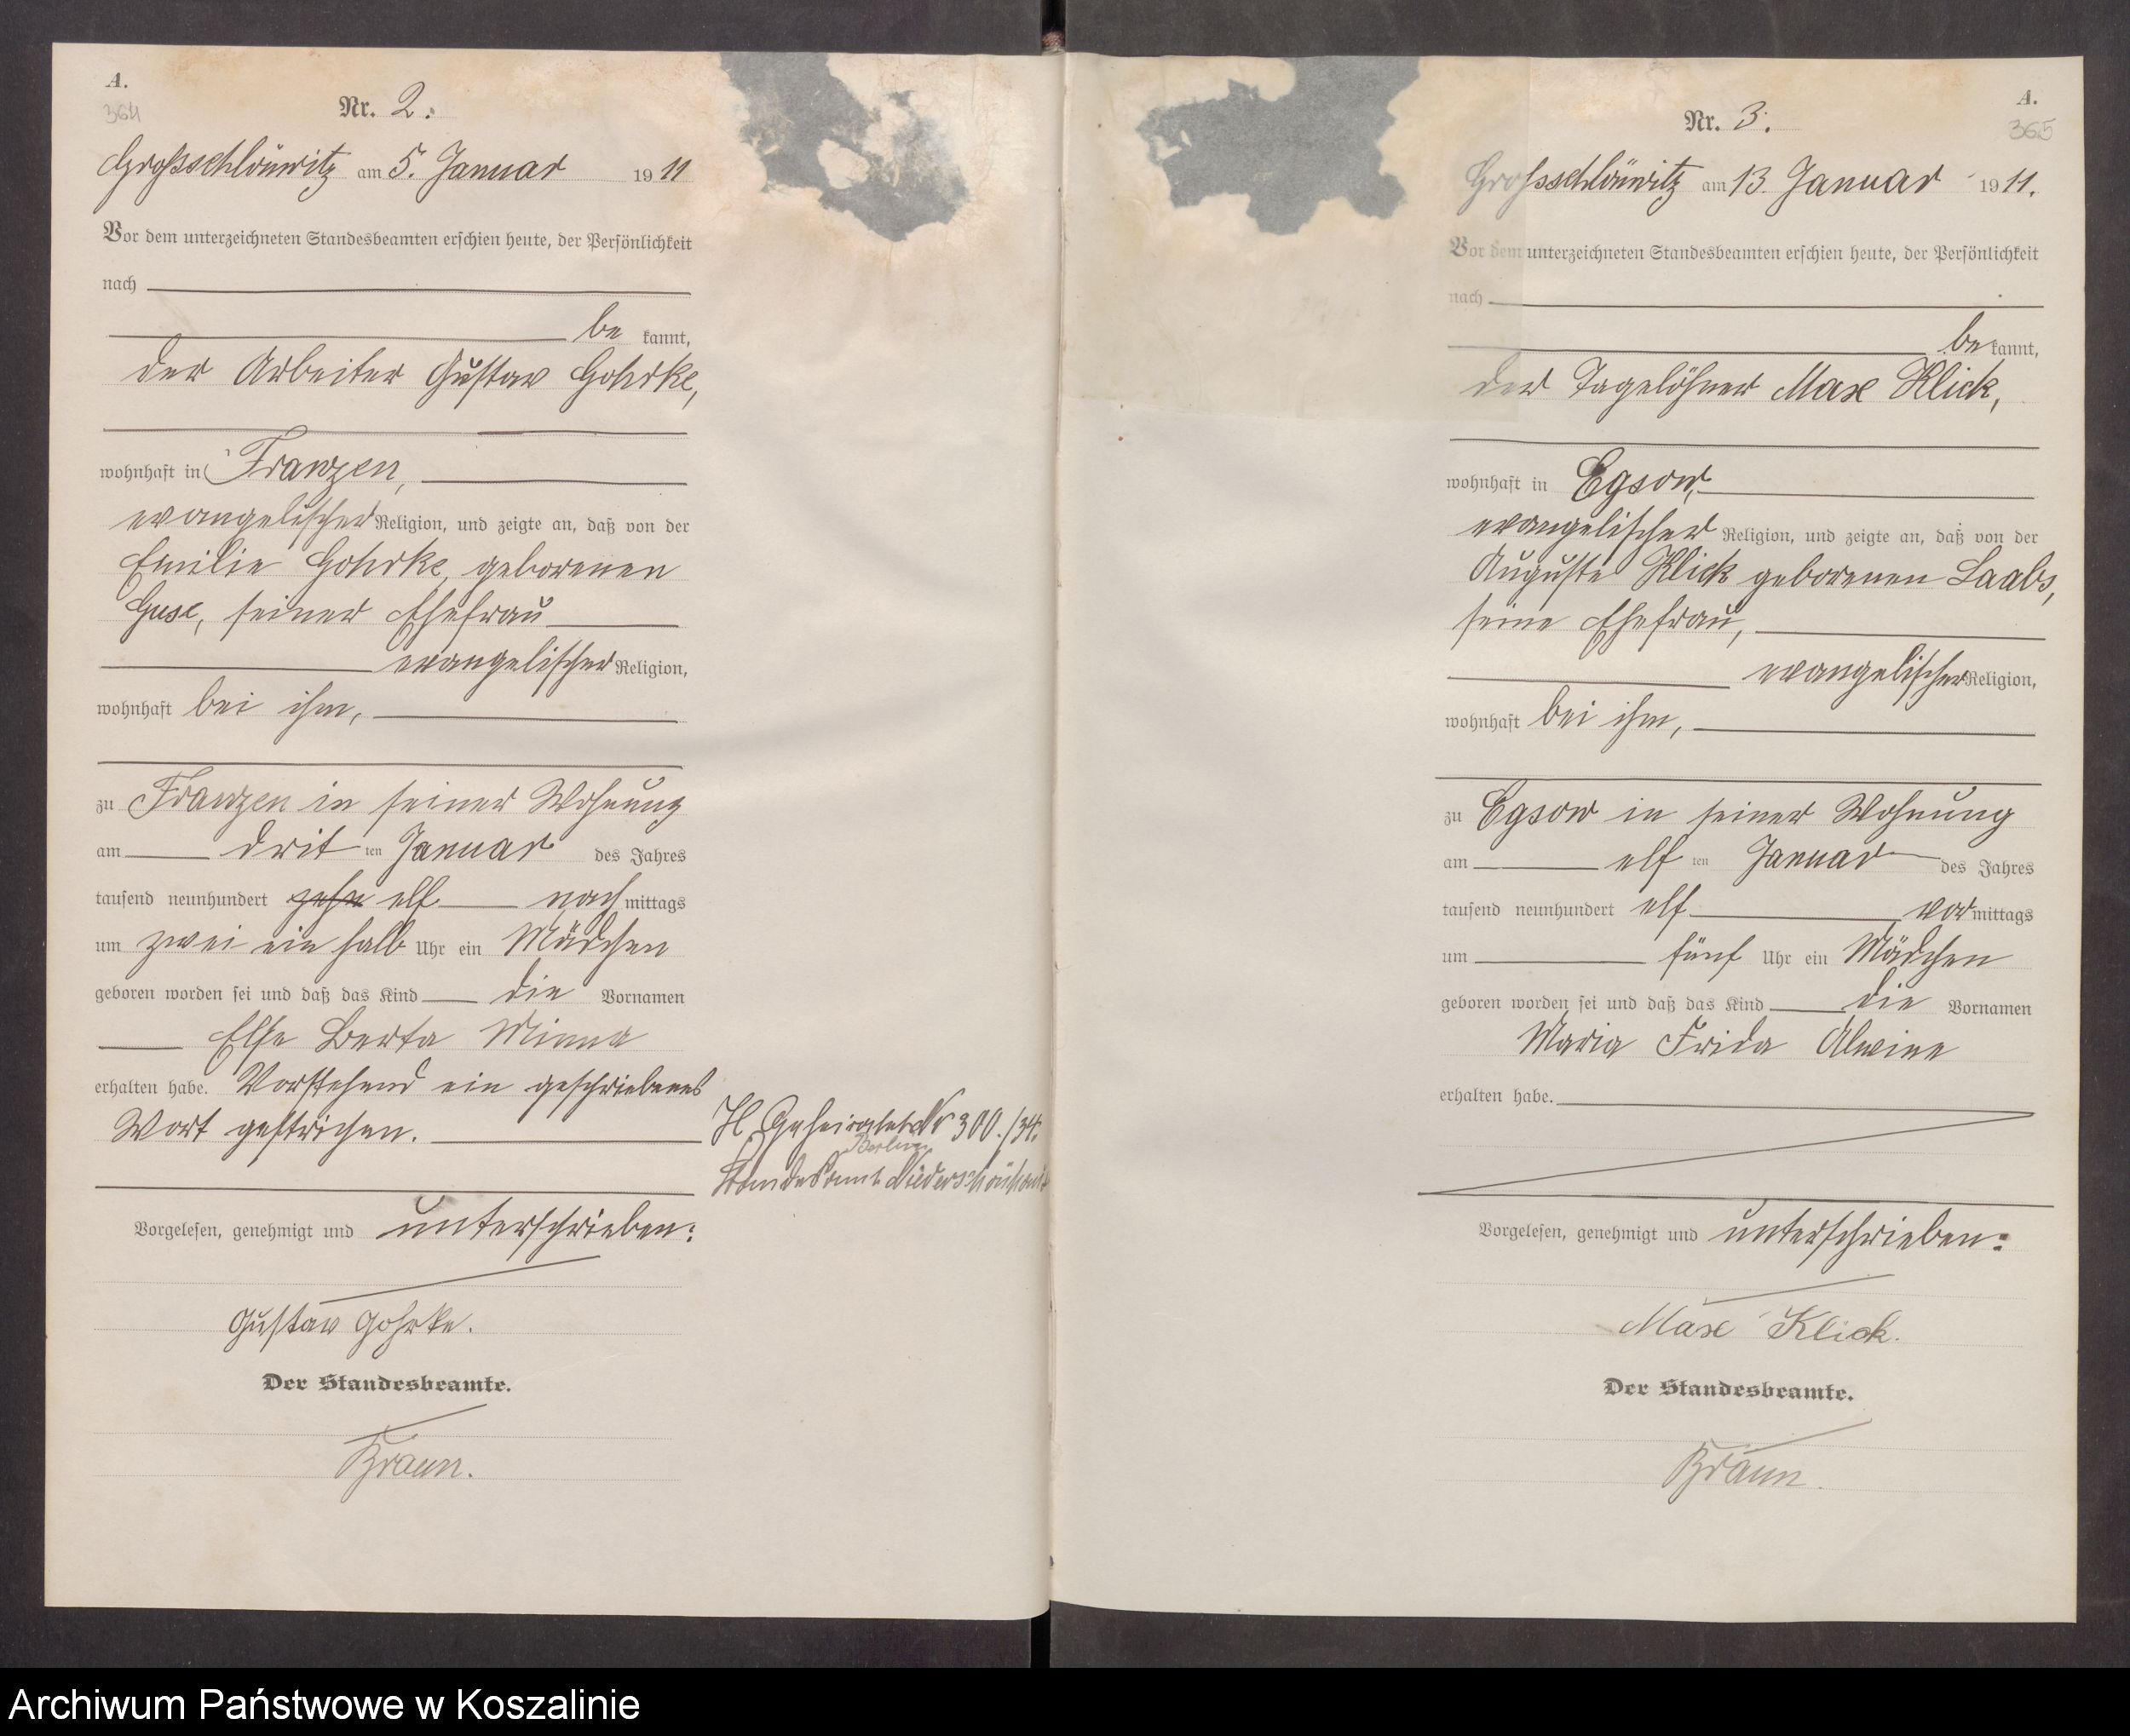 A.
364
Nr. 2.
Grossschlönwitz am 5. Januar 1911
Vor dem unterzeichneten Standesbeamten erschien heute, der Persönlichkeit
nach
be kannt,
der Arbeiter Gustav Gohrke,
wohnhaft in Franzen,
evangelischer Religion, und zeigte an, daß von der
Emilie Gohrke, geborenen
Guse, seiner Ehefrau
evangelischer Religion,
wohnhaft bei ihm,
zu Franzen in seiner Wohnung
am dritten Januar des Jahres
tausend neunhundert zehn elf nachmittags
um zwei ein halb Uhr ein Mädchen
geboren worden sei und daß das Kind die Vornamen
Else Berta Minna
erhalten habe. Vorstehend ein geschriebenes
Wort gestrichen.
Vorgelesen, genehmigt und unterschrieben:
Gustav Gohrke.
Der Standesbeamte.
Braun.
Geheiratet Nr 300./34.
Berlin
Standesamt Niederschönhaus
A.
365
Nr. 3.
Grossschlönwitz am 13. Januar 1911.
Vor dem unterzeichneten Standesbeamten erschien heute, der Persönlichkeit
nach
be kannt,
der Tagelöhner Max Klick,
wohnhaft in Egsow,
evangelischer Religion, und zeigte an, daß von der
Auguste Klick geborenen Laabs,
seine Ehefrau,
evangelischer Religion,
wohnhaft bei ihm,
zu Egsow in seiner Wohnung
am elften Januar des Jahres
tausend neunhundert elf vormittags
um fünf Uhr ein Mädchen
geboren worden sei und daß das Kind die Vornamen
Maria Frida Alwine
erhalten habe.
Vorgelesen, genehmigt und unterschrieben:
Max Klick.
Der Standesbeamte.
Braun.
Archiwum Państwowe w Koszalinie